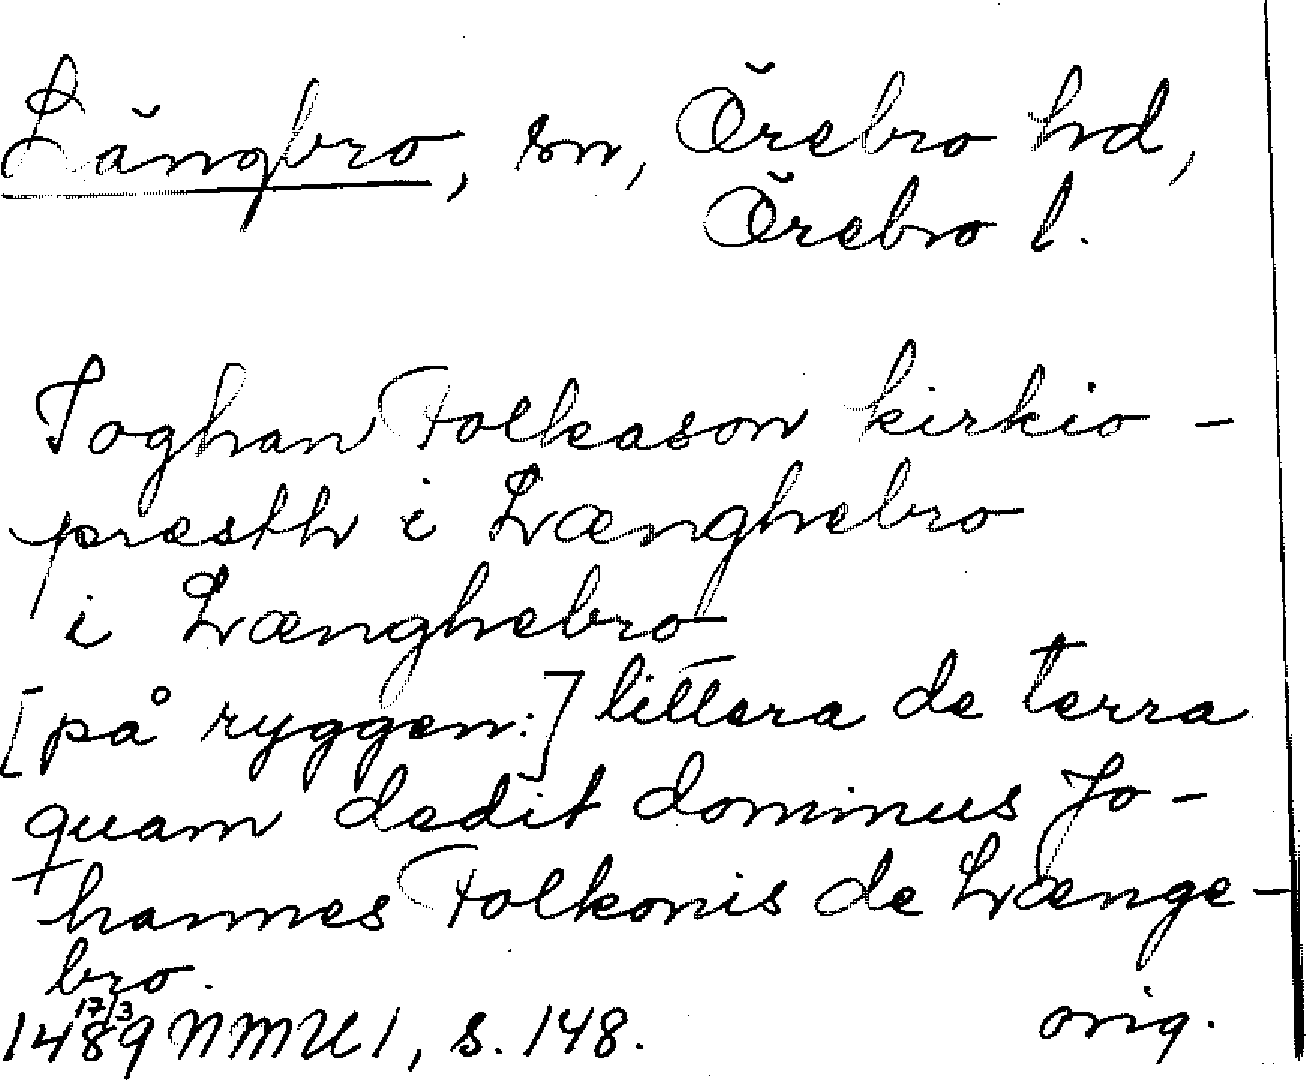 Långbro, sn, Örebro hd,
Örebro l.
Joghan Folkason kirkio-
præsth i Længhebro
i Længhebro
[på ryggen:] littera de terra
quam dedit dominus Jo-
hannes Folkonis de Længe-
bro.
1489 17/3 NMU 1, s. 148. orig.